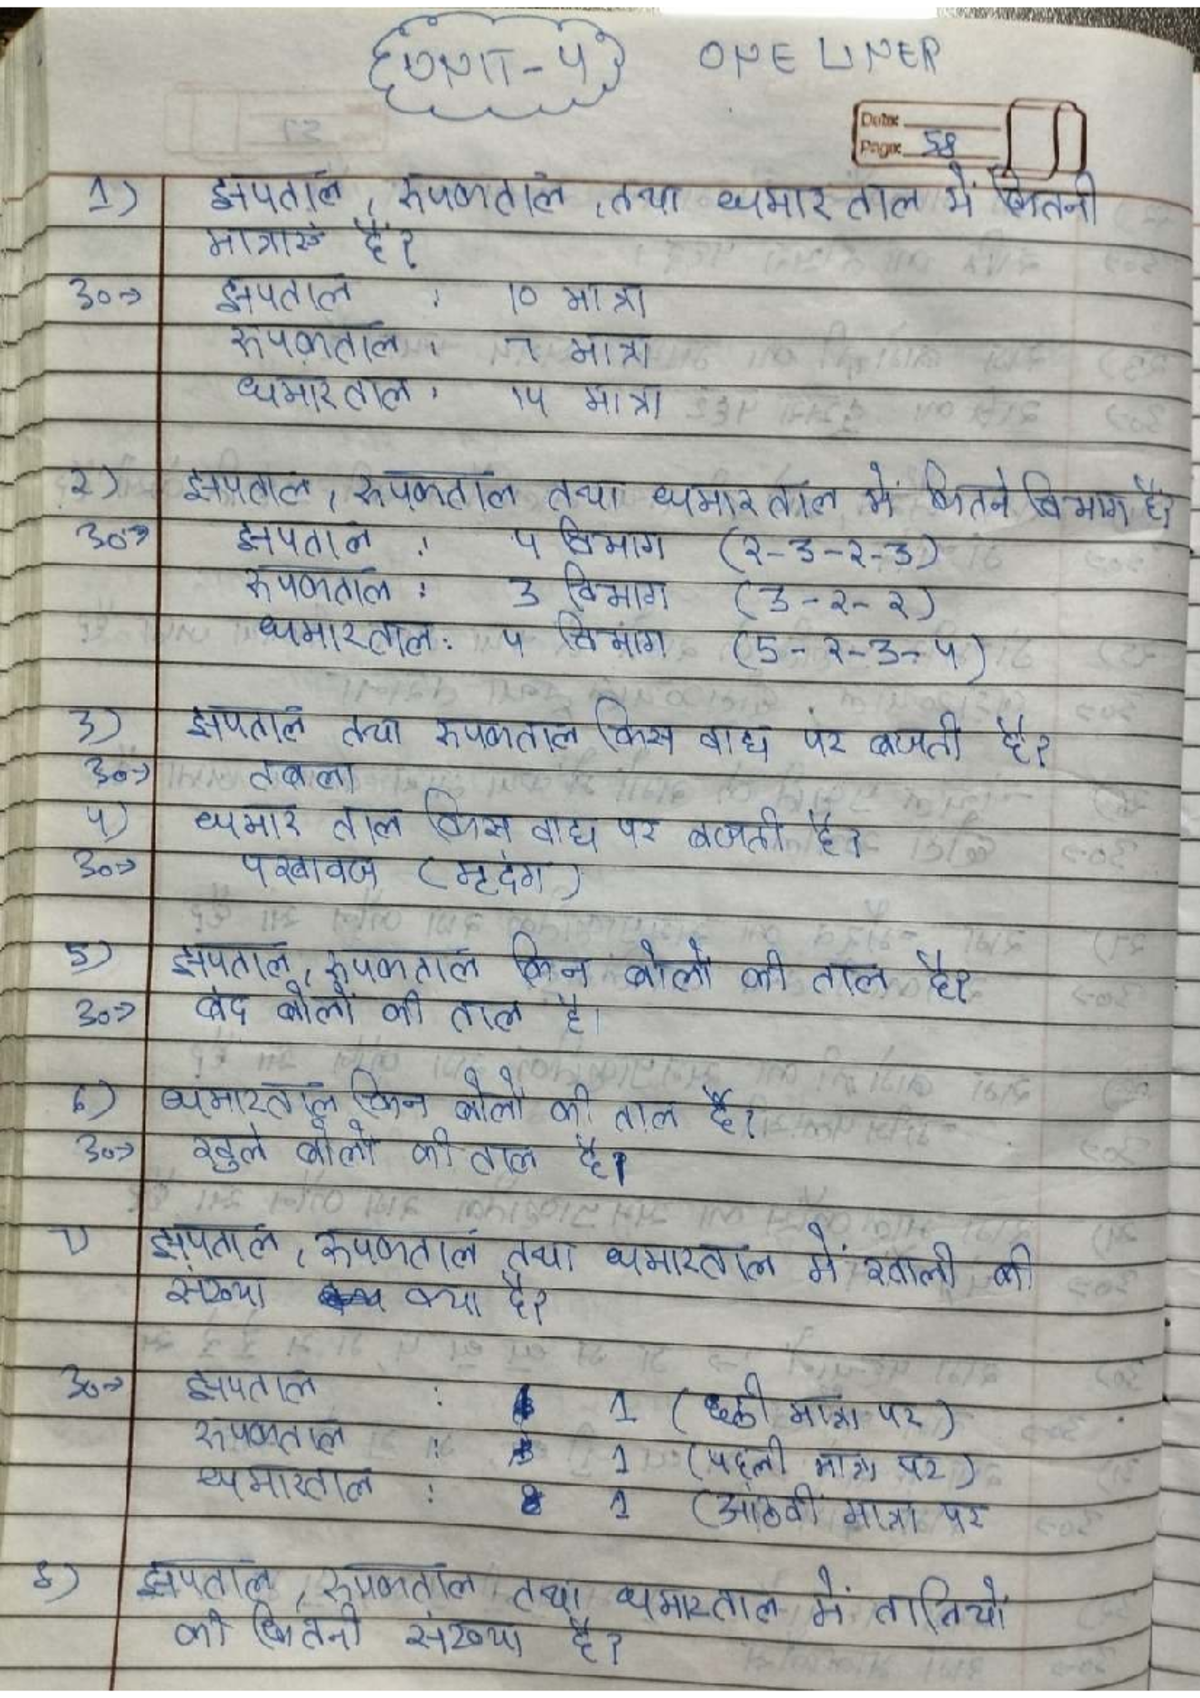 UNIT-4 ONE LINER
Date:
Page: 58
1) झपताल, रूपकताल, तथा धमार ताल में कितनी
मात्राएँ हैं?
उ०→ झपताल : १० मात्रा
रूपकताल : ७ मात्रा
धमारताल : १४ मात्रा
२) झपताल, रूपकताल तथा धमार ताल में कितने विभाग हैं?
उ०→ झपताल : ४ विभाग (२-३-२-३)
रूपकताल : ३ विभाग (३-२-२)
धमारताल : ४ विभाग (5-२-३-४)
३) झपताल तथा रूपकताल किस वाद्य पर बजती है?
उ०→ तबला
४) धमार ताल किस वाद्य पर बजती है?
उ०→ पखावज (मृदंग)
5) झपताल, रूपकताल किन बोलों की ताल है?
उ०→ बंद बोलों की ताल है।
६) धमारताल किन बोलों की ताल है?
उ०→ खुले बोलों की ताल है।
७) झपताल, रूपकताल तथा धमारताल में खाली की
संख्या क्या है?
उ०→ झपताल : 1 (छठी मात्रा पर)
रूपकताल : 1 (पहली मात्रा पर)
धमारताल : 1 (आठवीं मात्रा पर
8) झपताल, रूपकताल तथा धमारताल में तालियों
की कितनी संख्या है?